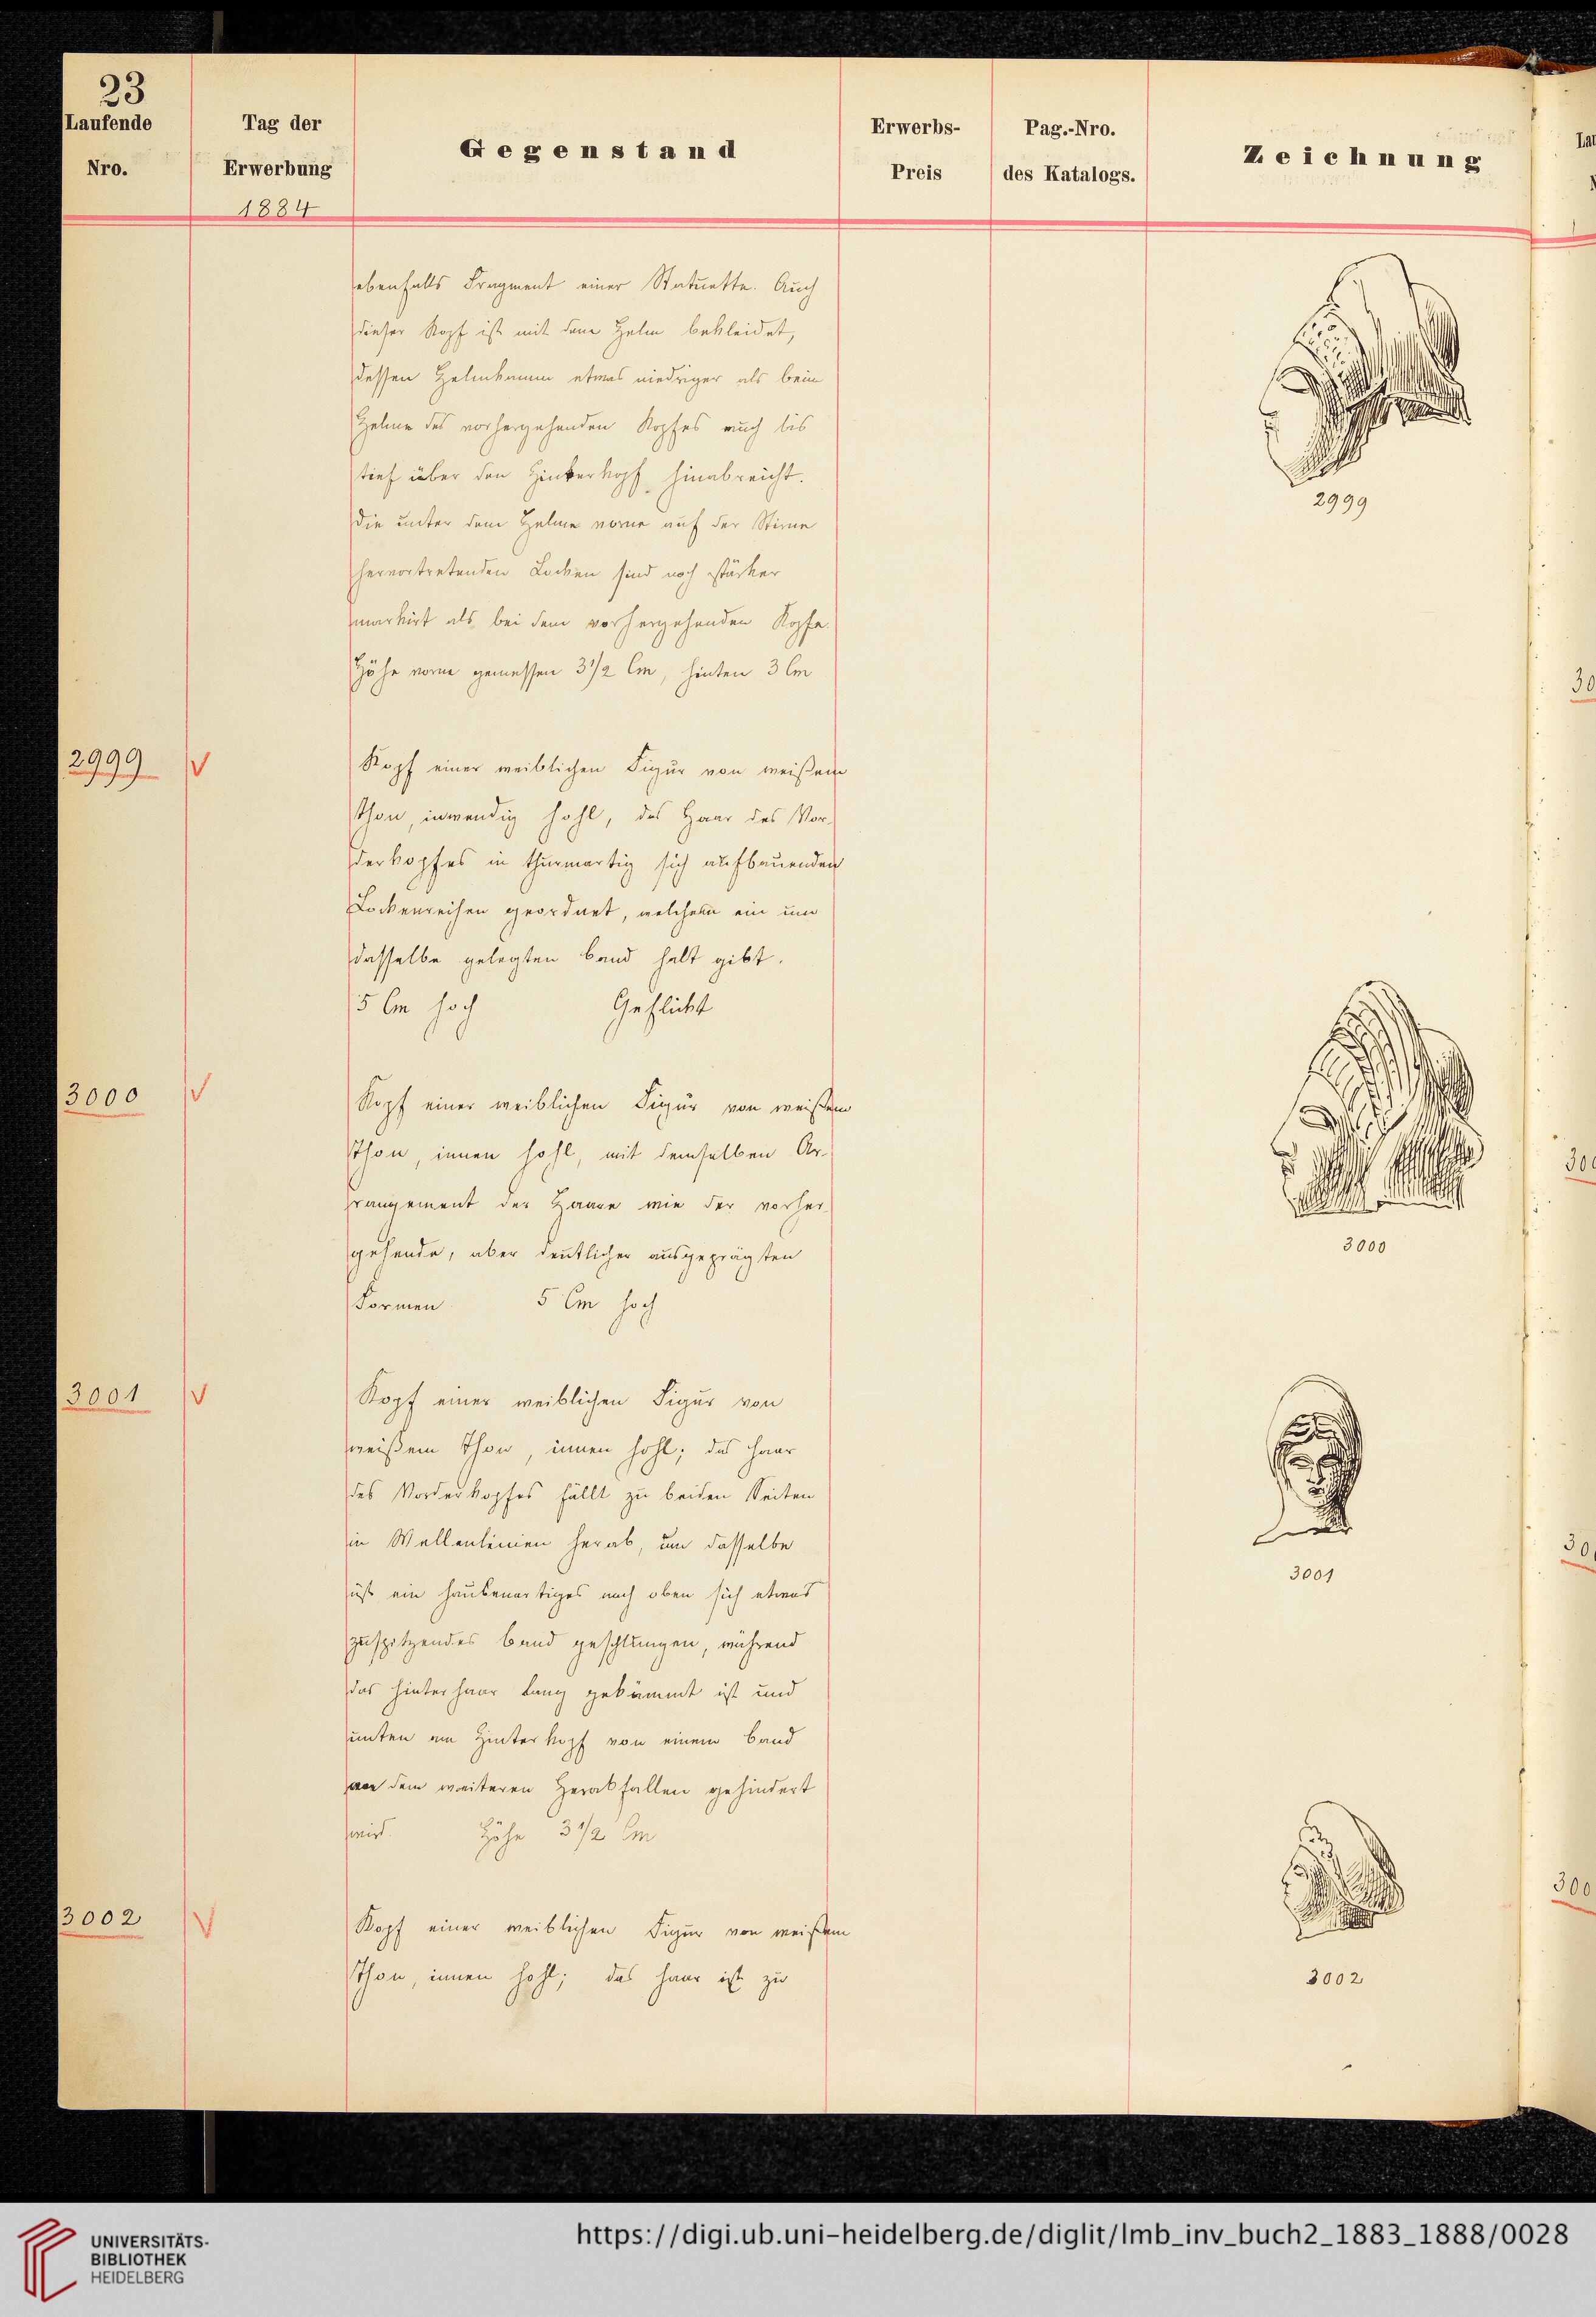 23
Laufende
Nro.
Tag der
Erwerbung
1884
Gegenstand
Erwerbs-
Preis
Pag.-Nro.
des Katalogs.
Zeichnung
ebenfalls Fragment einer Statuette. Auch
dieser Kopf ist mit dem Helm bekleidet,
dessen Helmkamm etwas niedriger als beim
Helme des vorhergehenden Kopfes auch bis
tief über den Hinterkopf hinabreicht.
Die unter dem Helme vorne auf der Stirne
hervortretenden Locken sind noch stärker
markirt als bei dem vorhergehenden Kopfe
Höhe vorne gemessen 3 1/2 Cm, hinten 3 Cm
2999
2999 V
Kopf einer weiblichen Figur von weißem
Thon, inwendig hohl, das Haar des Vor-
derkopfes in thurmartig sich aufbauenden
Lockenreihen geordnet, welchem ein um
dasselbe gelegten Band halt gibt.
5 Cm hoch Geflickt
3000 V
Kopf einer weiblichen Figur von weißem
Thon, innen hohl, mit demselben Ar-
rangement der Haare wie der vorher-
gehende, aber deutlicher ausgeprägten
Formen 5 Cm hoch
3000
3001 V
Kopf einer weiblichen Figur von
weißem Thon, innen hohl; das Haar
des Vorderkopfes fällt zu beiden Seiten
in Wellenlinien herab, um dasselbe
ist ein haubenartiges nach oben sich etwas
zuspitzendes Band geschlungen, während
das Hinterhaar lang gekämmt ist und
unten am Hinterkopf von einem Band
an dem weiteren Herabfallen gehindert
wird. Höhe 3 1/2 Cm
3001
3002 V
Kopf einer weiblichen Figur von weißem
Thon, innen hohl; das Haar ist zu
3002
UNIVERSITÄTS-
BIBLIOTHEK
HEIDELBERG
https://digi.ub.uni-heidelberg.de/diglit/lmb_inv_buch2_1883_1888/0028